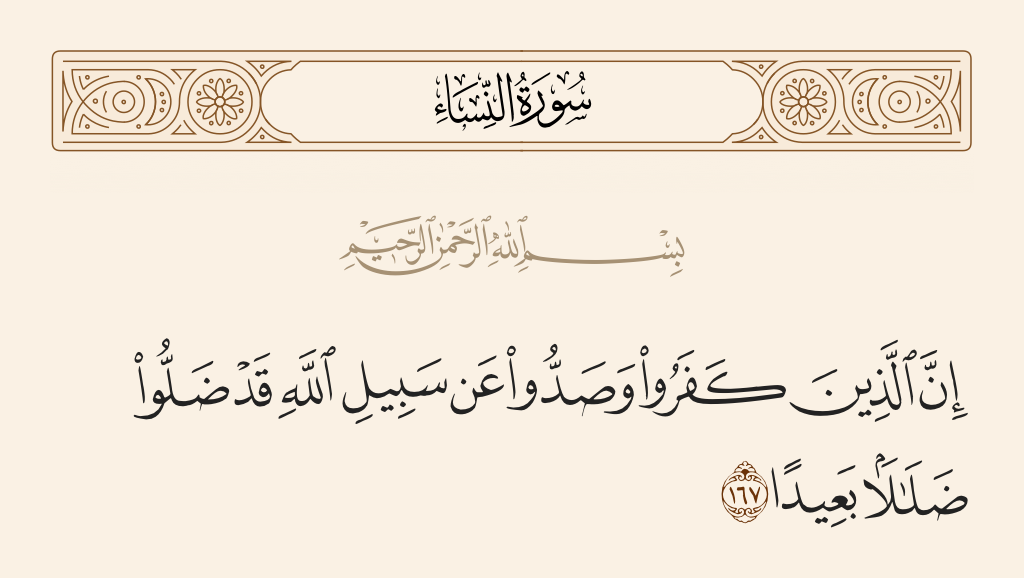 سُورَةُ النِّسَاءِ
بِسْمِ ٱللَّهِ ٱلرَّحْمَٰنِ ٱلرَّحِيمِ
إِنَّ ٱلَّذِينَ كَفَرُوا۟ وَصَدُّوا۟ عَن سَبِيلِ ٱللَّهِ قَدْ ضَلُّوا۟
ضَلَـٰلًۢا بَعِيدًا ١٦٧